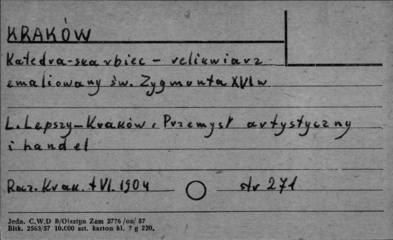 KRAKÓW
Katedra-skarbiec - relikwiarz
emaliowany św. Zygmunta XVI w
L. Lepszy-Kraków, Przemysł artystyczny
i handel
Rocz. Krak. t VI. 1904 str 271
Jedn. C.W.D B/Olsztyn Zam 2776 /on/ 87
Bitk. 2563/57 10.000 szt. karton kl. 7 g 220.